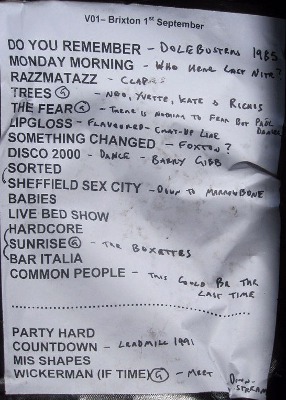 V01– Brixton 1st September
DO YOU REMEMBER – DOLEBUSTERS 1985
MONDAY MORNING – WHO HERE LAST NITE?
RAZZMATAZZ – CLAP
TREES G – NOO, YVETTE, KATE & RICHIS
THE FEAR G – THERE IS NOTHING TO FEAR BUT PAUL
LIPGLOSS – FLAVOURED– CHAT-UP LINE
SOMETHING CHANGED – FOXTON?
DISCO 2000 – DANCE – BARRY GIBB
SORTED
SHEFFIELD SEX CITY – DOWN TO MARROWBONE
BABIES
LIVE BED SHOW
HARDCORE
SUNRISE G – THE BOXETTES
BAR ITALIA
COMMON PEOPLE – THIS COULD BE THE
LAST TIME
PARTY HARD
COUNTDOWN – LEADMILL 1991
MIS SHAPES
WICKERMAN (IF TIME) G – MEET DOWN-
STREAM